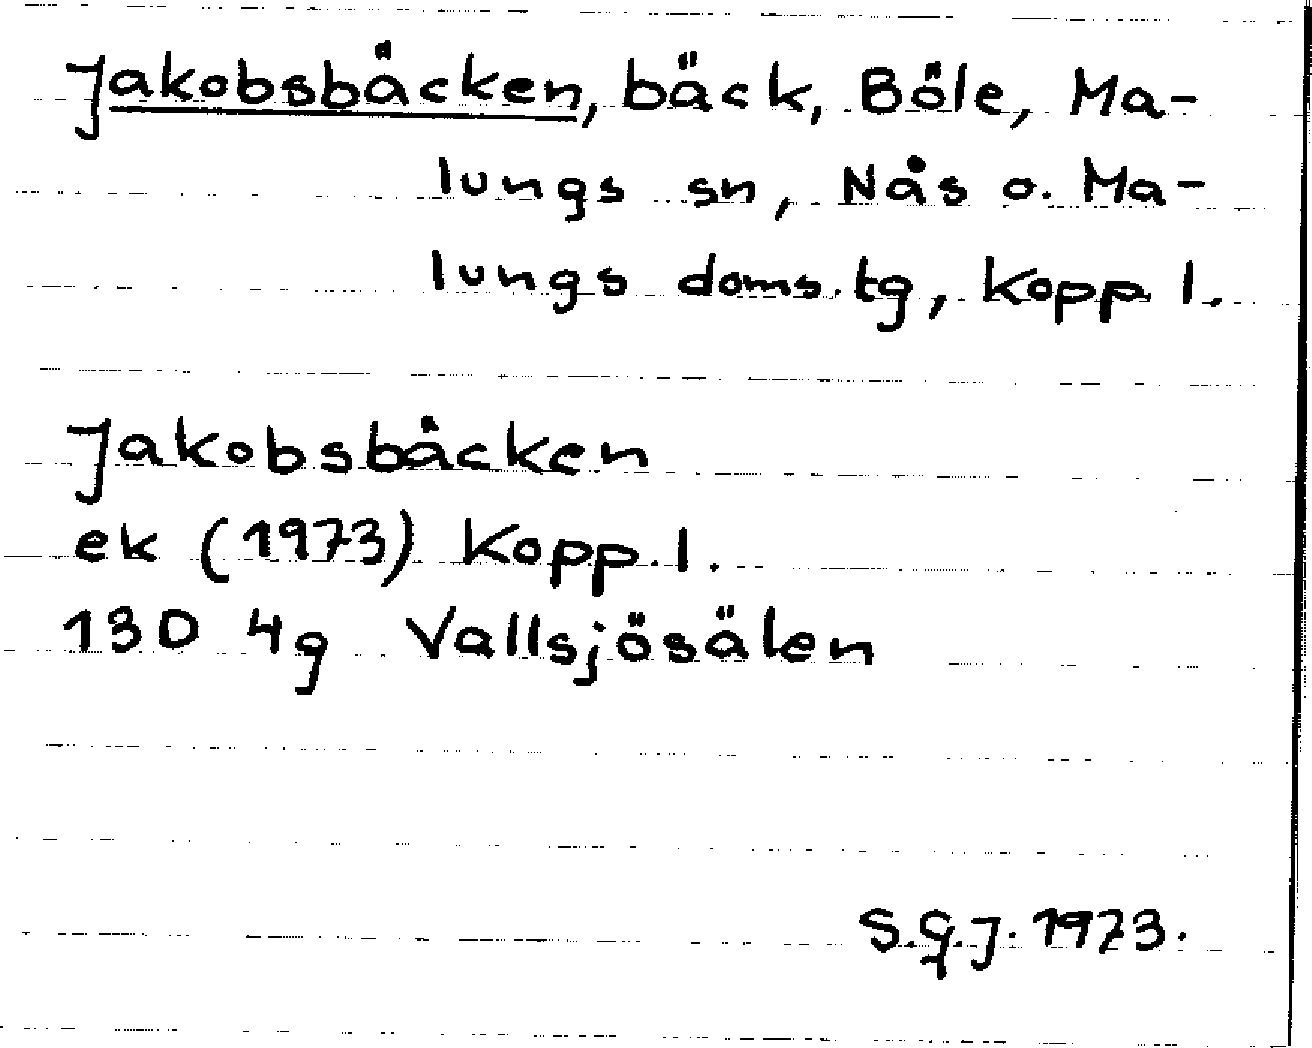 Jakobsbäcken, bäck, Böle, Ma-
lungs sn, Nås o. Ma-
lungs doms.tg, Kopp l.
Jakobsbäcken
ek (1973) Kopp. l.
13D 4g Vallsjösälen
S.G.J. 1973.